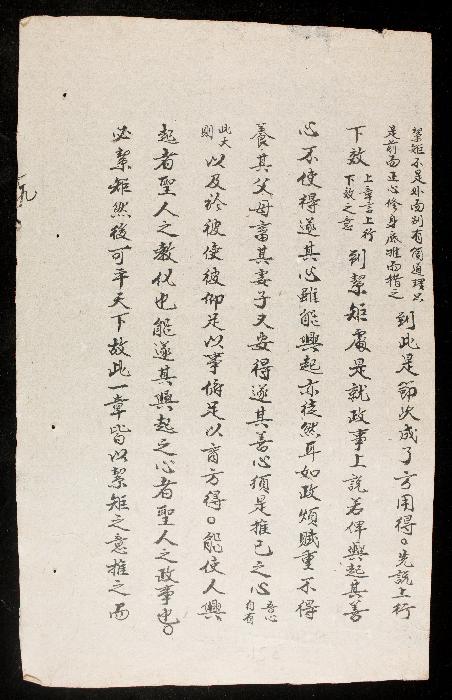 絜矩不是外面別有箇道理只
是前面正心修身底推而措之
到此是節次成了方用得。先說上行
下效
上章言上行
下效之意
到絜矩處是就政事上說若俾興起其善
心不使得遂其心雖能興起亦徒然耳如政煩賦重不得
養其父母畜其妻子又安得遂其善心須是推己之心
吾心
自有
此大
則
以及於彼使彼仰足以事俯足以育方得。能使人興
起者聖人之敎化也能遂其興起之心者聖人之政事也。
必絜矩然後可平天下故此一章皆以絜矩之意推之而